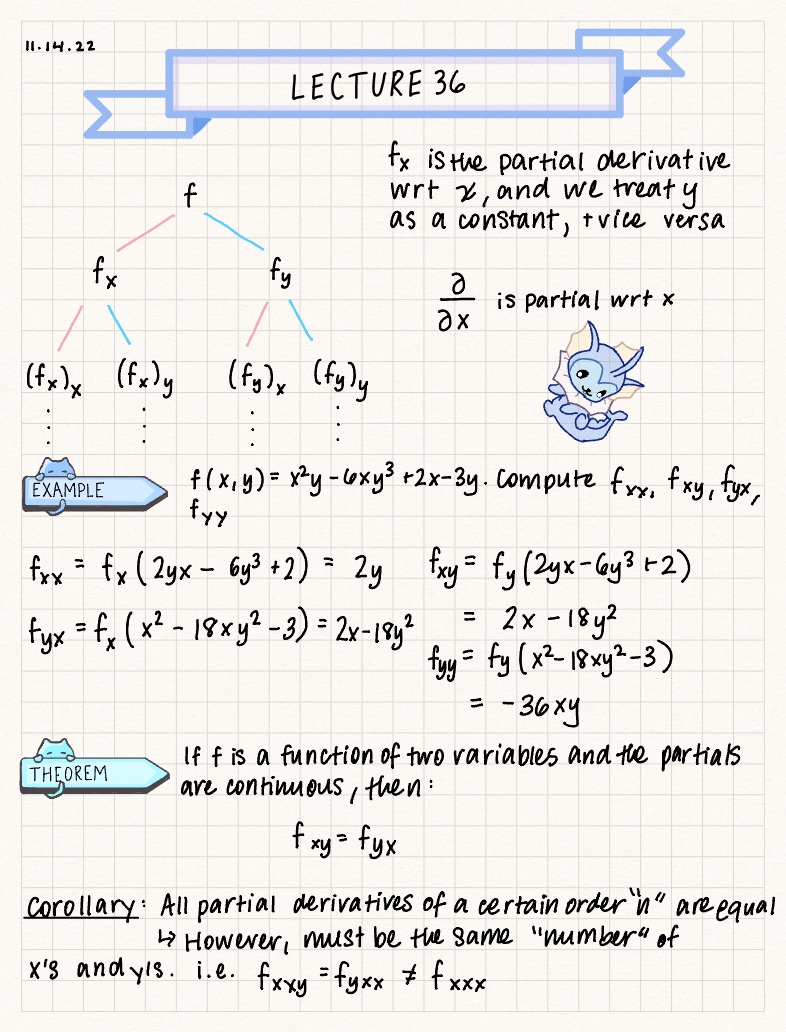 11.14.22
LECTURE 36
fx is the partial derivative
wrt x, and we treat y
as a constant, + vice versa
f
fx fy
∂/∂x is partial wrt x
(fx)x (fx)y (fy)x (fy)y
EXAMPLE
f(x,y) = x²y - 6xy³ + 2x - 3y. Compute fxx, fxy, fyx,
fyy
fxx = fx(2yx - 6y³ + 2) = 2y
fxy = fy(2yx - 6y³ + 2)
= 2x - 18y²
fyx = fx(x² - 18xy² - 3) = 2x - 18y²
fyy = fy(x² - 18xy² - 3)
= -36xy
THEOREM
If f is a function of two variables and the partials
are continuous, then:
fxy = fyx
Corollary: All partial derivatives of a certain order "n" are equal
↳ However, must be the same "number" of
x's and y's. i.e. fxxy = fyxx ≠ fxxx